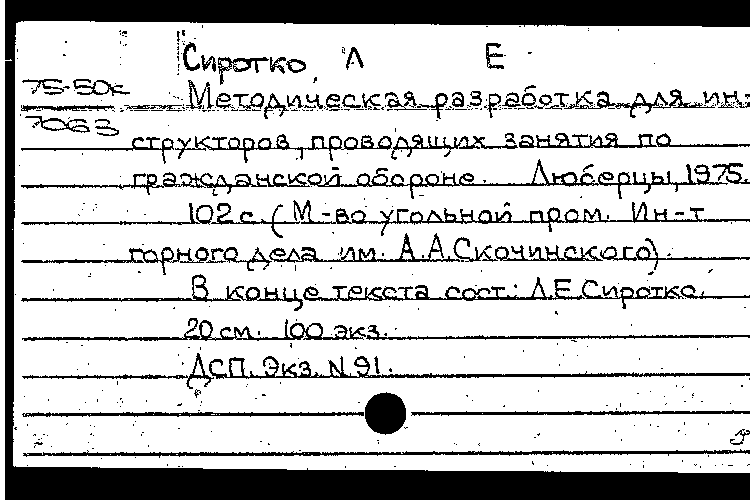 Сиротко, Л Е
75-50к
Методическая разработка для ин-
7063
структоров, проводящих занятия по
гражданской обороне. Люберцы, 1975.
102 с. (М-во угольной пром. Ин-т
горного дела им. А.А.Скочинского).
В конце текста сост.: Л.Е.Сиротко.
20 см. 100 экз.
ДСП. Экз. N 91.